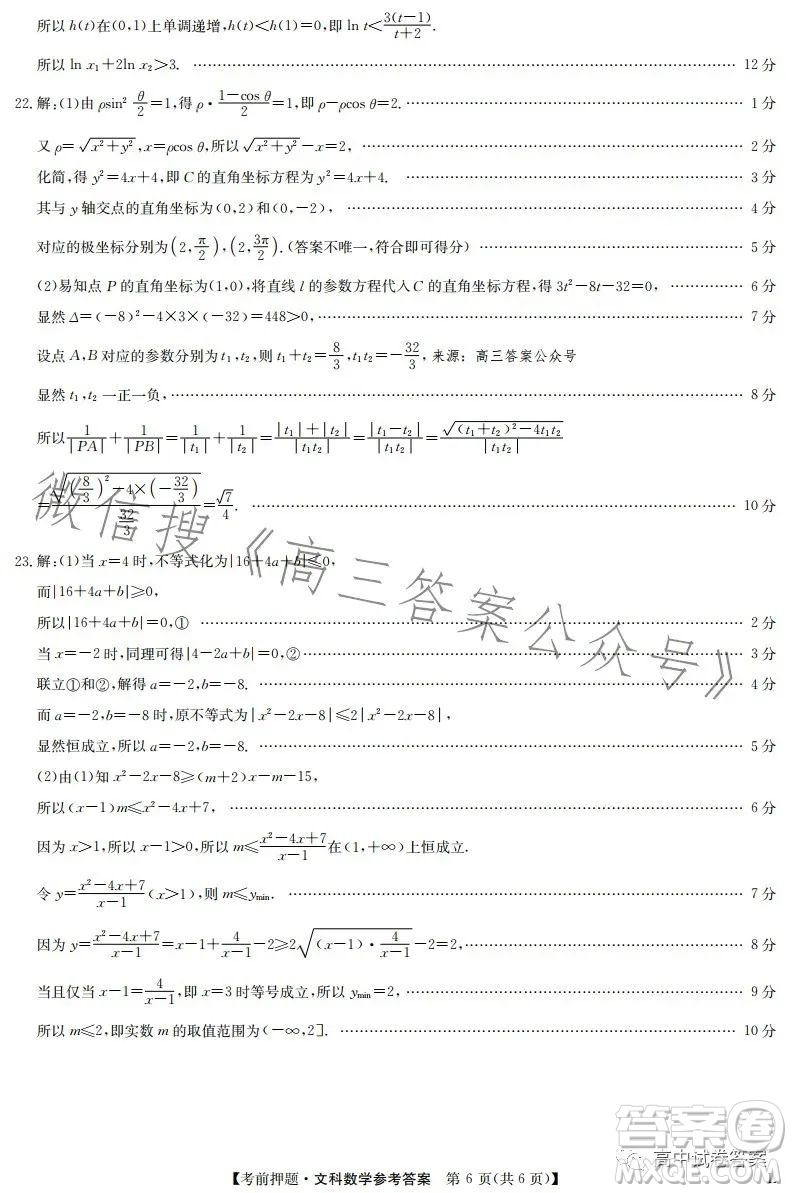 所以 h(t)在(0,1)上单调递增,h(t)<h(1)=0,即 ln t<3(t-1)/(t+2).
所以 ln x₁+2ln x₂>3. …… 12 分
22.解:(1)由 ρsin² θ/2=1,得 ρ·(1-cos θ)/2=1,即 ρ-ρcos θ=2. …… 1 分
又 ρ=√(x²+y²),x=ρcos θ,所以√(x²+y²)-x=2, …… 2 分
化简,得 y²=4x+4,即 C 的直角坐标方程为 y²=4x+4. …… 3 分
其与 y 轴交点的直角坐标为(0,2)和(0,-2), …… 4 分
对应的极坐标分别为(2,π/2),(2,3π/2).(答案不唯一,符合即可得分) …… 5 分
(2)易知点 P 的直角坐标为(1,0),将直线 l 的参数方程代人 C 的直角坐标方程,得 3t²-8t-32=0, …… 6 分
显然 Δ=(-8)²-4×3×(-32)=448>0, …… 7 分
设点 A,B 对应的参数分别为 t₁,t₂,则 t₁+t₂=8/3,t₁t₂=-32/3, 来源:高三答案公众号
显然 t₁,t₂ 一正一负, …… 8 分
所以 1/|PA|+1/|PB|=1/|t₁|+1/|t₂|=(|t₁|+|t₂|)/(|t₁||t₂|)=|t₁-t₂|/|t₁t₂|=√((t₁+t₂)²-4t₁t₂)/|t₁t₂|
=√((8/3)²-4×(-32/3))/(32/3)=√7/4. …… 10 分
23.解:(1)当 x=4 时,不等式化为|16+4a+b|≤0,
而|16+4a+b|≥0,
所以|16+4a+b|=0,① …… 2 分
当 x=-2 时,同理可得|4-2a+b|=0,② …… 3 分
联立①和②,解得 a=-2,b=-8. …… 4 分
而 a=-2,b=-8 时,原不等式为|x²-2x-8|≤2|x²-2x-8|,
显然恒成立,所以 a=-2,b=-8. …… 5 分
(2)由(1)知 x²-2x-8≥(m+2)x-m-15,
所以(x-1)m≤x²-4x+7, …… 6 分
因为 x>1,所以 x-1>0,所以 m≤(x²-4x+7)/(x-1)在(1,+∞)上恒成立.
令 y=(x²-4x+7)/(x-1)(x>1),则 m≤yₘᵢₙ. …… 7 分
因为 y=(x²-4x+7)/(x-1)=x-1+4/(x-1)-2≥2√((x-1)·4/(x-1))-2=2, …… 8 分
当且仅当 x-1=4/(x-1),即 x=3 时等号成立,所以 yₘᵢₙ=2, …… 9 分
所以 m≤2,即实数 m 的取值范围为(-∞,2]. …… 10 分
微信搜《高三答案公众号》
【考前押题·文科数学参考答案 第 6 页(共 6 页)】
答案圈
高中试卷答案
MXQE.COM